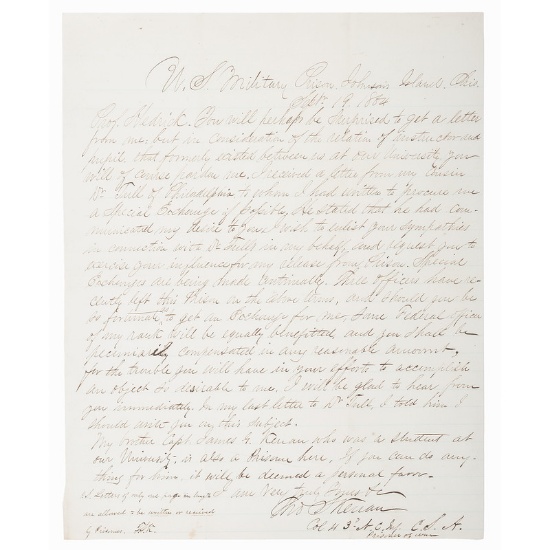 U. S. Military Prison, Johnsons Island, Ohio.
Sept. 19 1864
Prof. Hedrick. You will perhaps be surprised to get a letter
from me, but in consideration of the relation of Instructor and
pupil that formerly existed between us at our University you
will of course pardon me. I received a letter from my cousin
Dr. Tull of Philadelphia to whom I had written to procure me
a Special Exchange if possible, He stated that he had com-
municated my desire to you. I wish to enlist your sympathies
in connection with Dr Tull in my behalf, and request you to
exercise your influence for my release from Prison. Special
Exchanges are being made continually. Three Officers have re-
cently left this Prison on the above terms, and should you be
so fortunate, to get an Exchange for me, some Federal officer
of my rank will be equally benefitted, and you shall be
pecuniarily compensated in any reasonable amount,
for the trouble you will have in your efforts to accomplish
an object so desirable to me. I will be glad to hear from
you immediately. In my last letter to Dr Tull, I told him I
should write you on this subject.
My brother Capt. James G. Kenan who was a student at
our University, is also a Prisoner here. If you can do any-
thing for him, it will be deemed a personal favor.
I am Very Truly Yours &c
Letters of only one page in length
are allowed to be written or received
by Prisoners. TSK.
Thos S Kenan
Col 43d N. C. C. S. A.
Prisoner of war